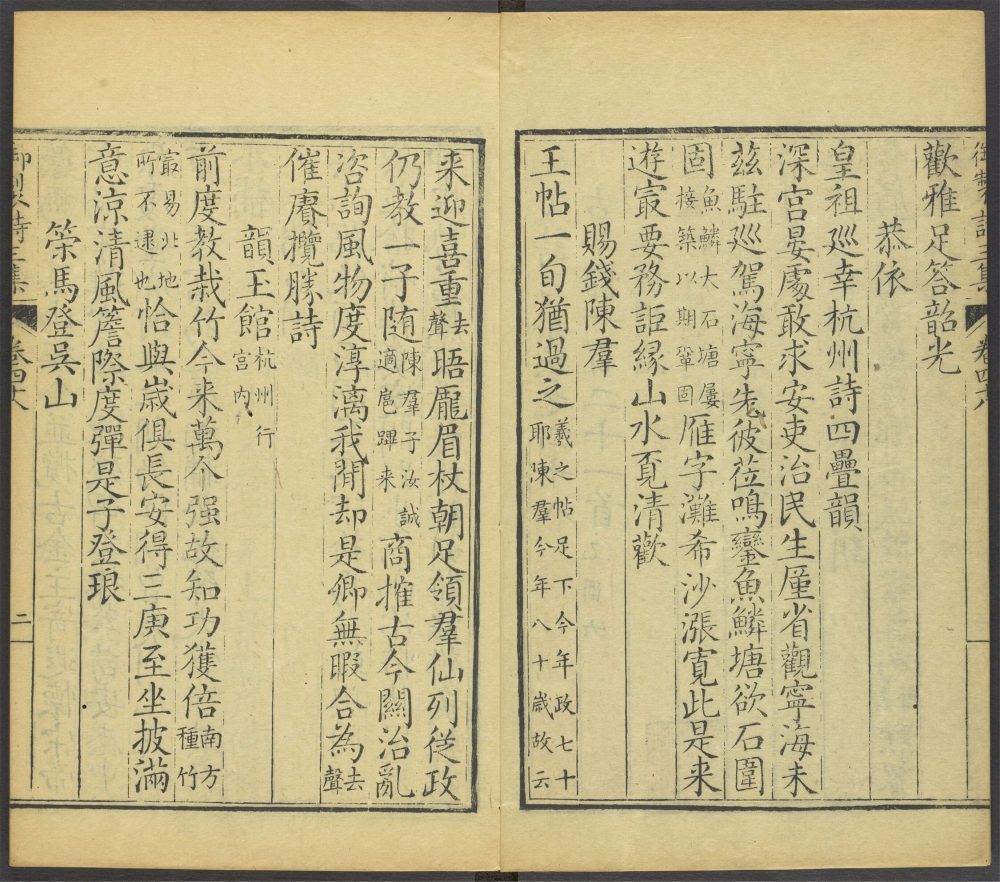 御製詩三集 卷四八
歡雅足答韶光
恭依
皇祖巡幸杭州詩四疊韻
深宮晏處敢求安吏治民生廑省觀寧海未
茲駐巡駕海寧先彼莅鳴鑾魚鱗塘欲石圍
固魚鱗大石塘屢接築以期鞏固雁字灘希沙漲寬此是来
遊㝡要務詎緣山水覓清歡
賜錢陳羣
王帖一旬猶過之羲之帖足下今年政七十耶陳羣今年八十歳故云
来迎喜重去聲晤龎眉杖朝足領羣仙列從政
仍教一子随陳羣子汝誠適扈蹕来商搉古今關治亂
咨詢風物度淳漓我閒却是卿無暇合為去聲
催賡攬勝詩
韻玉館杭州行宮内
前度教栽竹今来萬个强故知功獲倍南方種竹
㝡易北地所不逮也恰與歳俱長安得三庚至坐披滿
意涼清風簷際度彈是子登琅
策馬登吳山
御製詩三集 卷四八 二